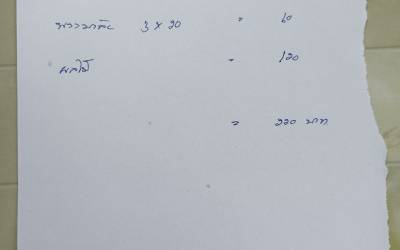 พวงมาลัย 3 x 20 = 60
ผลไม้ = 120
= 220 บาท